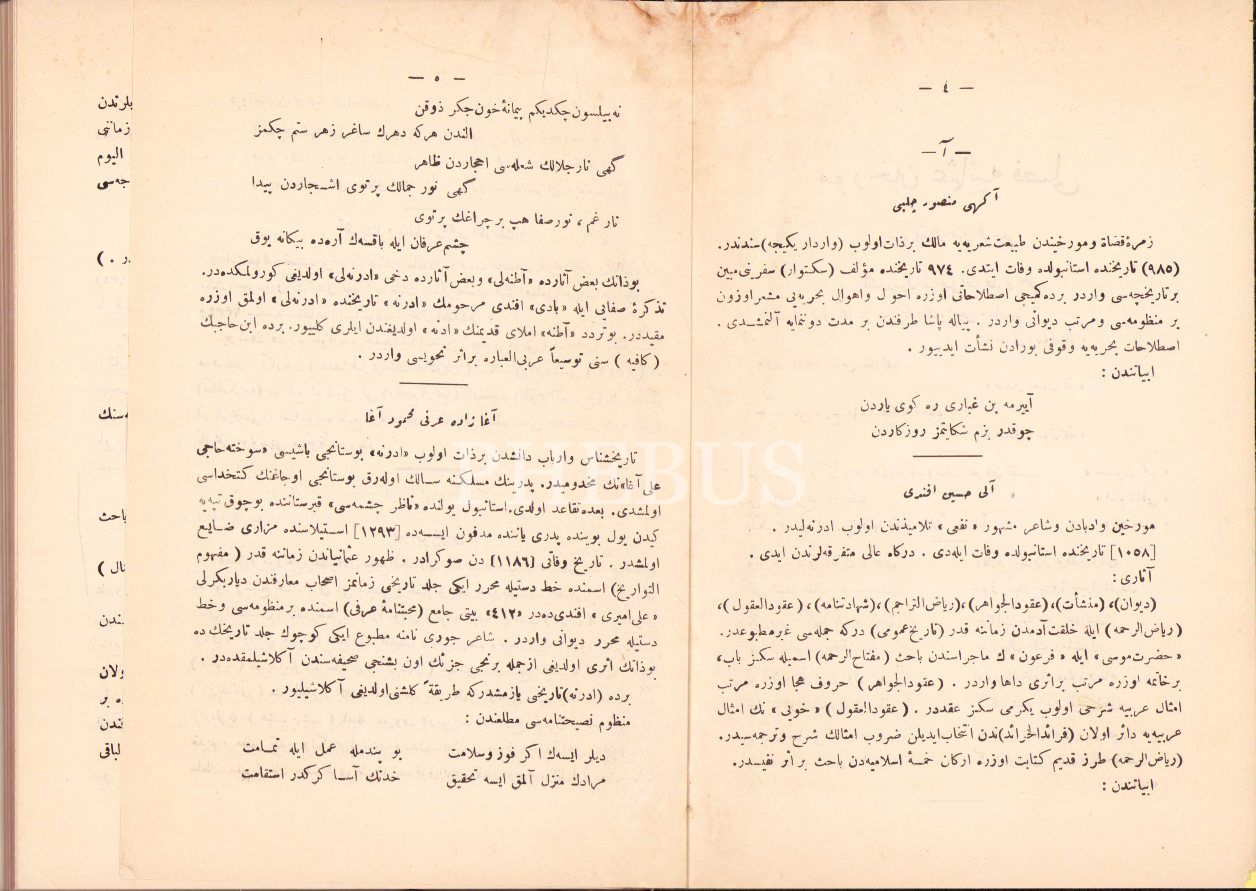 — ٤ —
— آ —
آكهی منصور چلبی
زمرهٔ قضاة و مورخیندن طبیعت شعریه‌یه مالك برذات اولوب (واردار یكیجه) سندندر.
(٩٨٥) تاریخنده استانبولده وفات ایتدی. ٩٧٤ تاریخنده مؤلف (سكتوار) سفرینی مبین
بر تاریخچه‌سی واردر برده كمیجی اصطلاحاتی اوزره احوال واهوال بحریه‌یی مشعر اوزون
بر منظومه‌سی و مرتب دیوانی واردر . پیاله پاشا طرفندن بر مدت دونمایه آلنمشدی .
اصطلاحات بحریه‌یه وقوفی بورادن نشأت ایدییور .
ابیاتندن :
آییرمه بن غباری ره كوی یاردن
چوقدر بزم شكایتمز روزكاردن
آلی حسین افندی
مورخین وادبادن وشاعر مشهور «نفعی» تلامیذندن اولوب ادرنه‌لیدر .
[١٠٥٨] تاریخنده استانبولده وفات ایله‌دی . دركاه عالی متفرقه‌لرندن ایدی .
آثاری :
(دیوان)، (منشآت)، (عقودالجواهر)، (ریاض‌التراجم)، (شهادتنامه)، (عقودالعقول)،
(ریاض‌الرحمه) ایله خلقت آدمدن زماننه قدر (تاریخ عمومی) دركه جمله‌سی غیر مطبوعدر.
«حضرت موسی» ایله «فرعون» ك ماجراسندن باحث (مفتاح‌الرحمه) اسمیله سكز باب،
بر خاتمه اوزره مرتب بر اثری داها واردر . (عقودالجواهر) حروف هجا اوزره مرتب
امثال عربیه شرحی اولوب یكرمی سكز عقددر . (عقودالعقول) «خوبی» نك امثال
عربیه‌یه دائر اولان (فرائدالخرائد) ندن انتخاب ایدیلن ضروب امثالك شرح و ترجمه‌سیدر.
(ریاض‌الرحمه) طرز قدیم كتابت اوزره اركان خمسهٔ اسلامیه‌دن باحث بر اثر نفیسدر.
ابیاتندن :
— ٥ —
نه بیلسون چكدیكم پیمانهٔ خون جكر ذوقن
الندن هركه دهرك ساغر زهر ستم چكمز
كهی نار جلالك شعله‌سی احجاردن ظاهر
كهی نور جمالك پرتوی اشجاردن پیدا
نار غم ، نور صفا هپ بر چراغك پرتوی
چشم عرفان ایله باقسه‌ك آره‌ده بیكانه یوق
بوذاتك بعض آثارده «آطنه‌لی» وبعض آثارده دخی «ادرنه‌لی» اولدیغی كورولمكده‌در.
تذكرهٔ صفایی ایله «بادی» افندی مرحومك «ادرنه» تاریخنده «ادرنه‌لی» اولمق اوزره
مقیددر. بوتردد «آطنه» املای قدیمنك «ادنه» اولدیغندن ایلری كلییور. برده ابن حاجبك
(كافیه) سنی توسیعاً عربی‌العباره بر اثر نحویسی واردر .
آغازاده عرفی محمود آغا
تاریخشناس وارباب دانشدن برذات اولوب «ادرنه» بوستانجی باشیسی «سوخته حاجی
علی آغا»نك مخدومیدر. پدرینك مسلكنه سالك اوله‌رق بوستانجی اوجاغنك كتخداسی
اولمشدی. بعده تقاعد اولدی. استانبول یولنده «ناظر چشمه‌سی» قبرستاننده بوچوق تپه‌یه
كیدن یول بوینده پدری یاننده مدفون ایسه‌ده [١٢٩٣] استیلاسنده مزاری ضایع
اولمشدر . تاریخ وفاتی [١١٨٦] دن صوكرادر . ظهور عثمانیاندن زماننه قدر (مفهوم
التواریخ) اسمنده خط دستیله محرر ایكی جلد تاریخی زمانمز اصحاب معارفندن دیاربكرلی
«علی امیری» افندی‌ده‌در «٤١٢» بیتی جامع (محبتنامهٔ عرفی) اسمنده بر منظومه‌سی وخط
دستیله محرر دیوانی واردر . شاعر جوری نامنه مطبوع ایكی كوچوك جلد تاریخك ده
بوذاتك اثری اولدیغی ازجمله برنجی جزئك اون بشنجی صحیفه‌سندن آكلاشیلمقده‌در .
برده (ادرنه) تاریخی یازمشدركه طریقةً كلشنی اولدیغی آكلاشیلیور .
منظوم نصیحتنامه‌سی مطلعندن :
دیلر ایسه‌ك اكر فوز و سلامت بو پندمله عمل ایله تمامت
مرادك منزل آلمق ایسه تحقیق خدنك آسا كركدر استقامت
بلرتدن
زمانی
الیوم
جه‌سی
در . )
ه‌سنك
باحث
ال )
ندن
ولان
ه بر
لباقی
PHEBUS